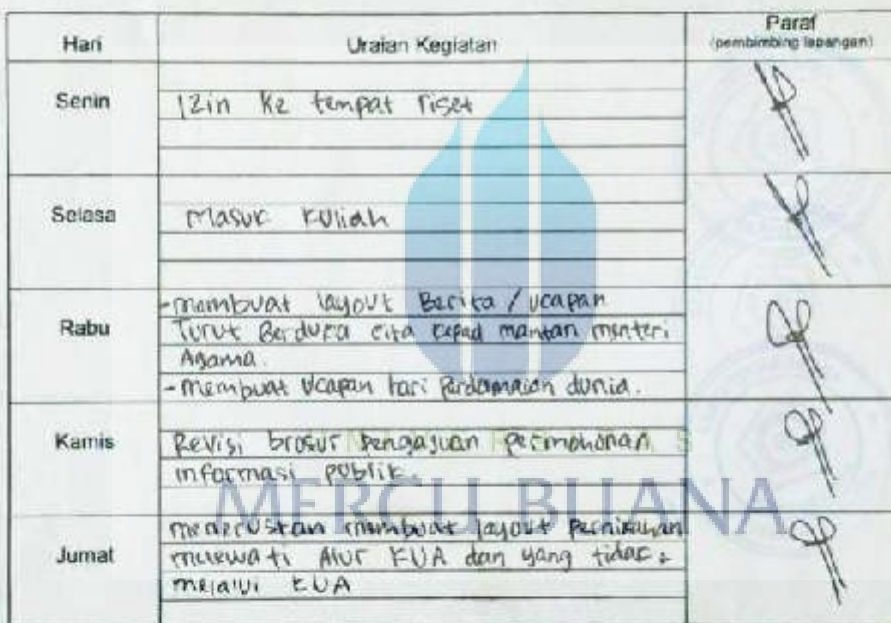 Hari Uraian Kegiatan Paraf
(pembimbing lapangan)
Senin Izin ke tempat riset
Selasa Masuk kuliah
Rabu
-membuat layout Berita / ucapan
Turut Berduka cita kepad mantan menteri
Agama.
-membuat ucapan hari perdamaian dunia.
Kamis Revisi brosur pengajuan permohonan
informasi publik.
MERCU BUANA
Jumat
meneruskan membuat layout pernikahan
melewati Alur KUA dan yang tidak
melalui KUA